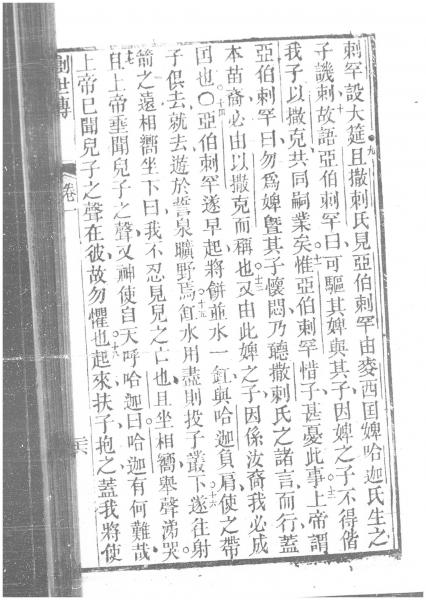 剌罕設大筵且撒剌氏見亞伯剌罕由麥西囯婢哈迦氏生之
子譏刺故語亞伯剌罕曰可驅其婢與其子因婢之子不得偕
我子以撒克共同嗣業矣惟亞伯剌罕惜子甚憂此事上帝謂
亞伯剌罕曰勿為婢曁其子懷悶乃聽撒剌氏之諸言而行蓋
本苗裔必由以撒克而稱也又由此婢之子因係汝裔我必成
囯也〇亞伯剌罕遂早起將餅並水一缸與哈迦負肩使之帶
子俱去就去遊於誓泉曠野焉缸水用盡則投子叢下遂往射
箭之遠相嚮坐下曰我不忍見兒之亡也且坐相嚮舉聲涕哭
且上帝垂聞兒子之聲又神使自天呼哈迦曰哈迦有何難哉
上帝已聞兒子之聲在彼故勿懼也起來扶子抱之蓋我將使
創世傳
卷一